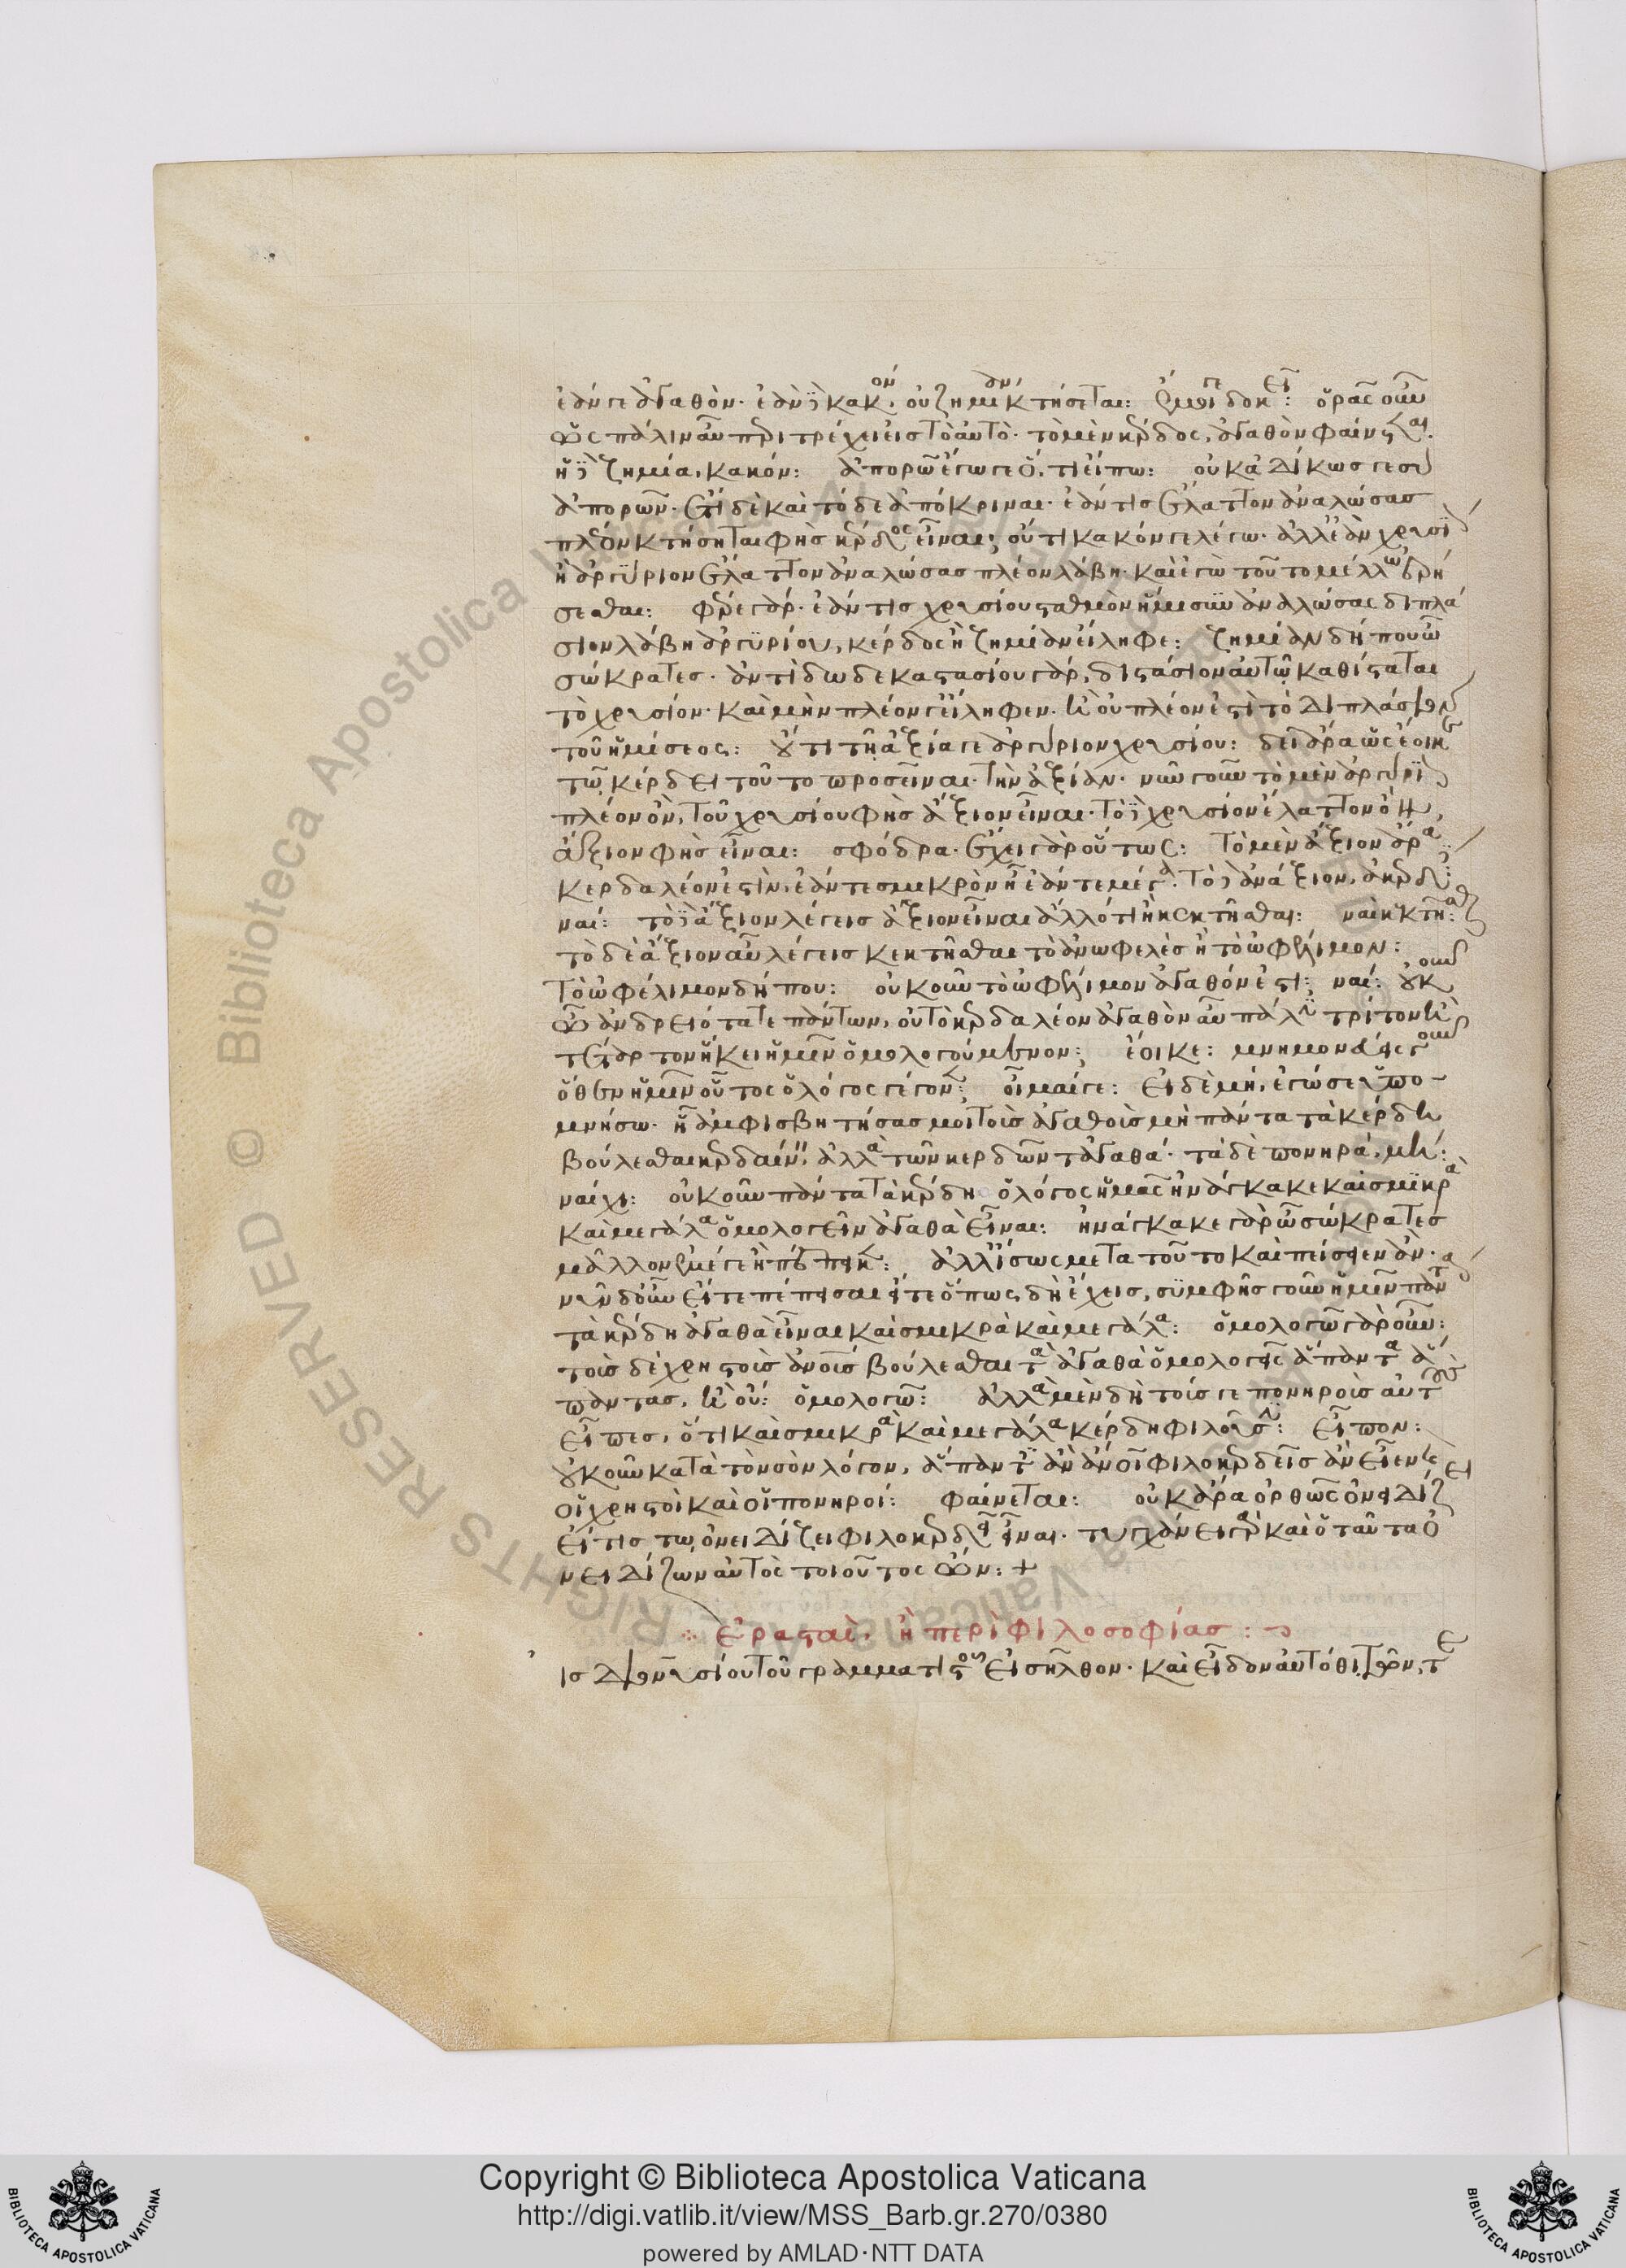 ἐάν γε ἀγαθόν· ἐὰν δὲ κακόν, οὐ ζημίαν κτήσεται: ἔμοιγε δοκεῖ: ὁρᾷς οὖν
ὡς πάλιν αὖ περιτρέχει εἰς τὸ αὐτό· τὸ μὲν κέρδος, ἀγαθὸν φαίνεται.
ἡ δὲ ζημία, κακόν: ἀπορῶ ἔγωγε ὅ,τι εἴπω: οὐκ ἀδίκως γε σὺ
ἀπορῶν· ἔτι δὲ καὶ τόδε ἀπόκριναι· ἐάν τις ἔλαττον ἀναλώσας
πλέον κτήσηται φὴς κέρδος εἶναι; οὔτι κακόν γε λέγω· ἀλλ' ἐὰν χρυσίον
ἢ ἀργύριον ἔλαττον ἀναλώσας πλέον λάβῃ· καὶ ἐγὼ τοῦτο μέλλω ἐρή
σεσθαι: φέρε γάρ· ἐάν τις χρυσίου σταθμὸν ἥμισυν ἀναλώσας διπλά
σιον λάβῃ ἀργυρίου, κέρδος ἢ ζημίαν εἴληφε: ζημίαν δήπου ὦ
σώκρατες· ἀντὶ δωδεκαστασίου γάρ, διστάσιον αὐτῷ καθίσταται
τὸ χρυσίον· καὶ μὴν πλέον γ' εἴληφεν· ἢ οὐ πλέον ἐστὶ τὸ διπλάσιον
τοῦ ἡμίσεος: οὔτι τῇ ἀξίᾳ γε ἀργύριον χρυσίου: δεῖ ἄρα ὡς ἔοικε
τῷ κέρδει τοῦτο προσεῖναι· τὴν ἀξίαν· νῦν γοῦν τὸ μὲν ἀργύριον
πλέον ὂν, τοῦ χρυσίου φὴς ἄξιον εἶναι· τὸ δὲ χρυσίον ἔλαττον ὂν,
ἄξιον φὴς εἶναι: σφόδρα· ἔχει γὰρ οὕτως: τὸ μὲν ἄξιον ἄρα
κερδαλέον ἐστὶν, ἐάν τε σμικρὸν ᾖ ἐάν τε μέγα. τὸ δὲ ἀνάξιον, ἀκερδές:
ναί: τὸ δὲ ἄξιον λέγεις ἄξιον εἶναι ἄλλό τι ἢ κεκτῆσθαι: ναὶ κεκτῆσθαι:
τὸ δὲ ἄξιον αὖ λέγεις κεκτῆσθαι τὸ ἀνωφελὲς ἢ τὸ ὠφέλιμον:
τὸ ὠφέλιμον δήπου: οὐκοῦν τὸ ὠφέλιμον ἀγαθόν ἐστι: ναί: οὐκοῦν
ὦ ἀνδρειότατε πάντων, οὐ τὸ κερδαλέον ἀγαθὸν αὖ πάλιν τρίτον ἢ
τέταρτον ἥκει ἡμῖν ὁμολογούμενον; ἔοικε: μνημονεύεις οὖν
ὅθεν ἡμῖν οὗτος ὁ λόγος γέγονεν; οἶμαί γε: εἰ δὲ μή, ἐγώ σε ὑπο-
μνήσω· ἠμφισβήτησάς μοι τοὺς ἀγαθοὺς μὴ πάντα τὰ κέρδη
βούλεσθαι κερδαίνειν, ἀλλὰ τῶν κερδῶν τἀγαθά· τὰ δὲ πονηρά, μή:
ναίχι: οὐκοῦν πάντα τὰ κέρδη ὁ λόγος ἡμᾶς ἠνάγκακε καὶ σμικρὰ
καὶ μεγάλα ὁμολογεῖν ἀγαθὰ εἶναι: ἠνάγκακε γὰρ ὦ σώκρατες
μᾶλλον ἐμέ γε ἢ πέπεικεν: ἀλλ' ἴσως μετὰ τοῦτο καὶ πείσειεν ἄν·
νῦν δ' οὖν εἴτε πέπεισαι εἴτε ὅπως δὴ ἔχεις, σύμφῃς γοῦν ἡμῖν πάντα
τὰ κέρδη ἀγαθὰ εἶναι καὶ σμικρὰ καὶ μεγάλα: ὁμολογῶ γὰρ οὖν:
τοὺς δὲ χρηστοὺς ἀνθρώπους βούλεσθαι τὰ ἀγαθὰ ὁμολογεῖς ἅπαντα ἅ
παντας, ἢ οὔ: ὁμολογῶ: ἀλλὰ μὲν δὴ τούς γε πονηροὺς αὐτὸς
εἶπες, ὅτι καὶ σμικρὰ καὶ μεγάλα κέρδη φιλοῦσιν: εἶπον:
οὐκοῦν κατὰ τὸν σὸν λόγον, ἅπαντες ἂν ἄνθρωποι φιλοκερδεῖς ἂν εἶεν καὶ
οἱ χρηστοὶ καὶ οἱ πονηροί: φαίνεται: οὐκ ἄρα ὀρθῶς ὀνειδίζει
εἴ τίς τῳ ὀνειδίζει φιλοκερδεῖ εἶναι· τυγχάνει γὰρ καὶ ὁ ταῦτα ὀ
νειδίζων αὐτὸς τοιοῦτος ὤν: +
ἐρασταὶ, ἢ περὶ φιλοσοφίας :
ις Διονυσίου τοῦ γραμματιστοῦ εἰσῆλθον· καὶ εἶδον αὐτόθι τῶν, τε
Copyright © Biblioteca Apostolica Vaticana
http://digi.vatlib.it/view/MSS_Barb.gr.270/0380
powered by AMLAD·NTT DATA